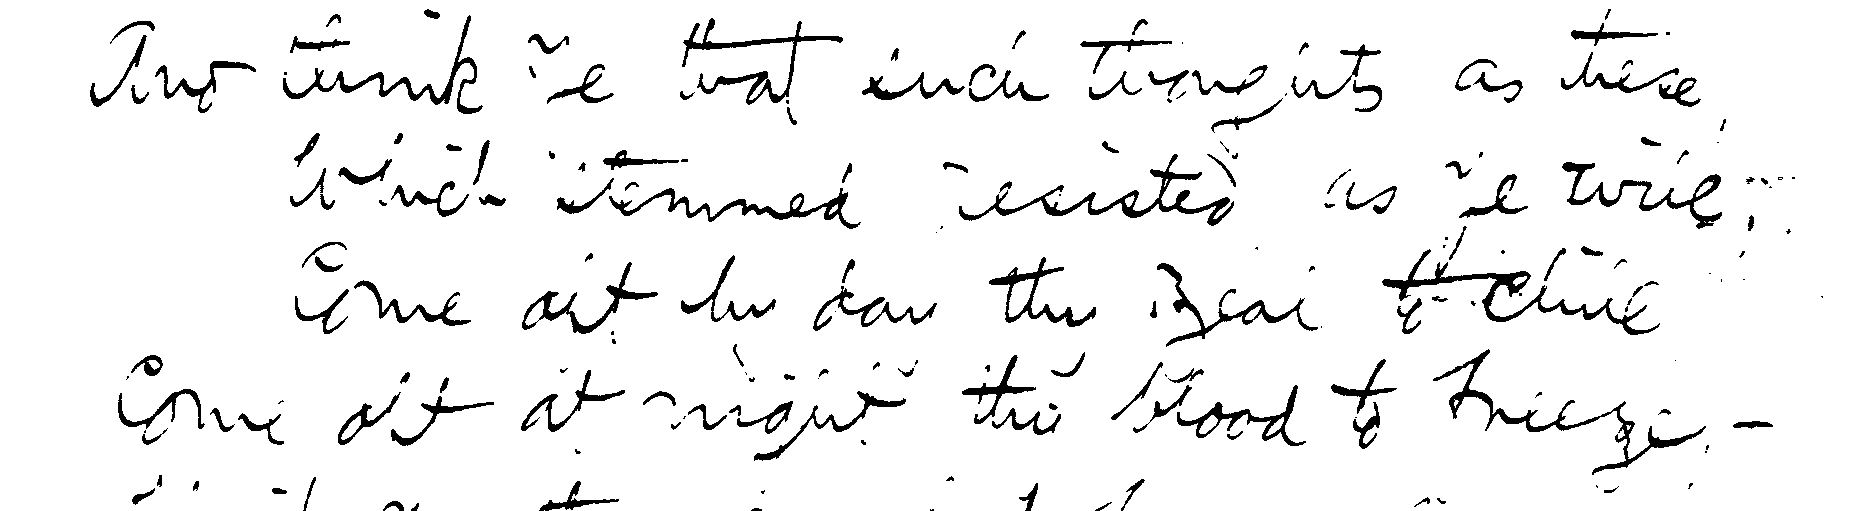 And think ye that such thoughts as these
Which stemmed resisted as ye will,
Come oft by day the zeal to chill
Come oft at night the blood to freeze, –